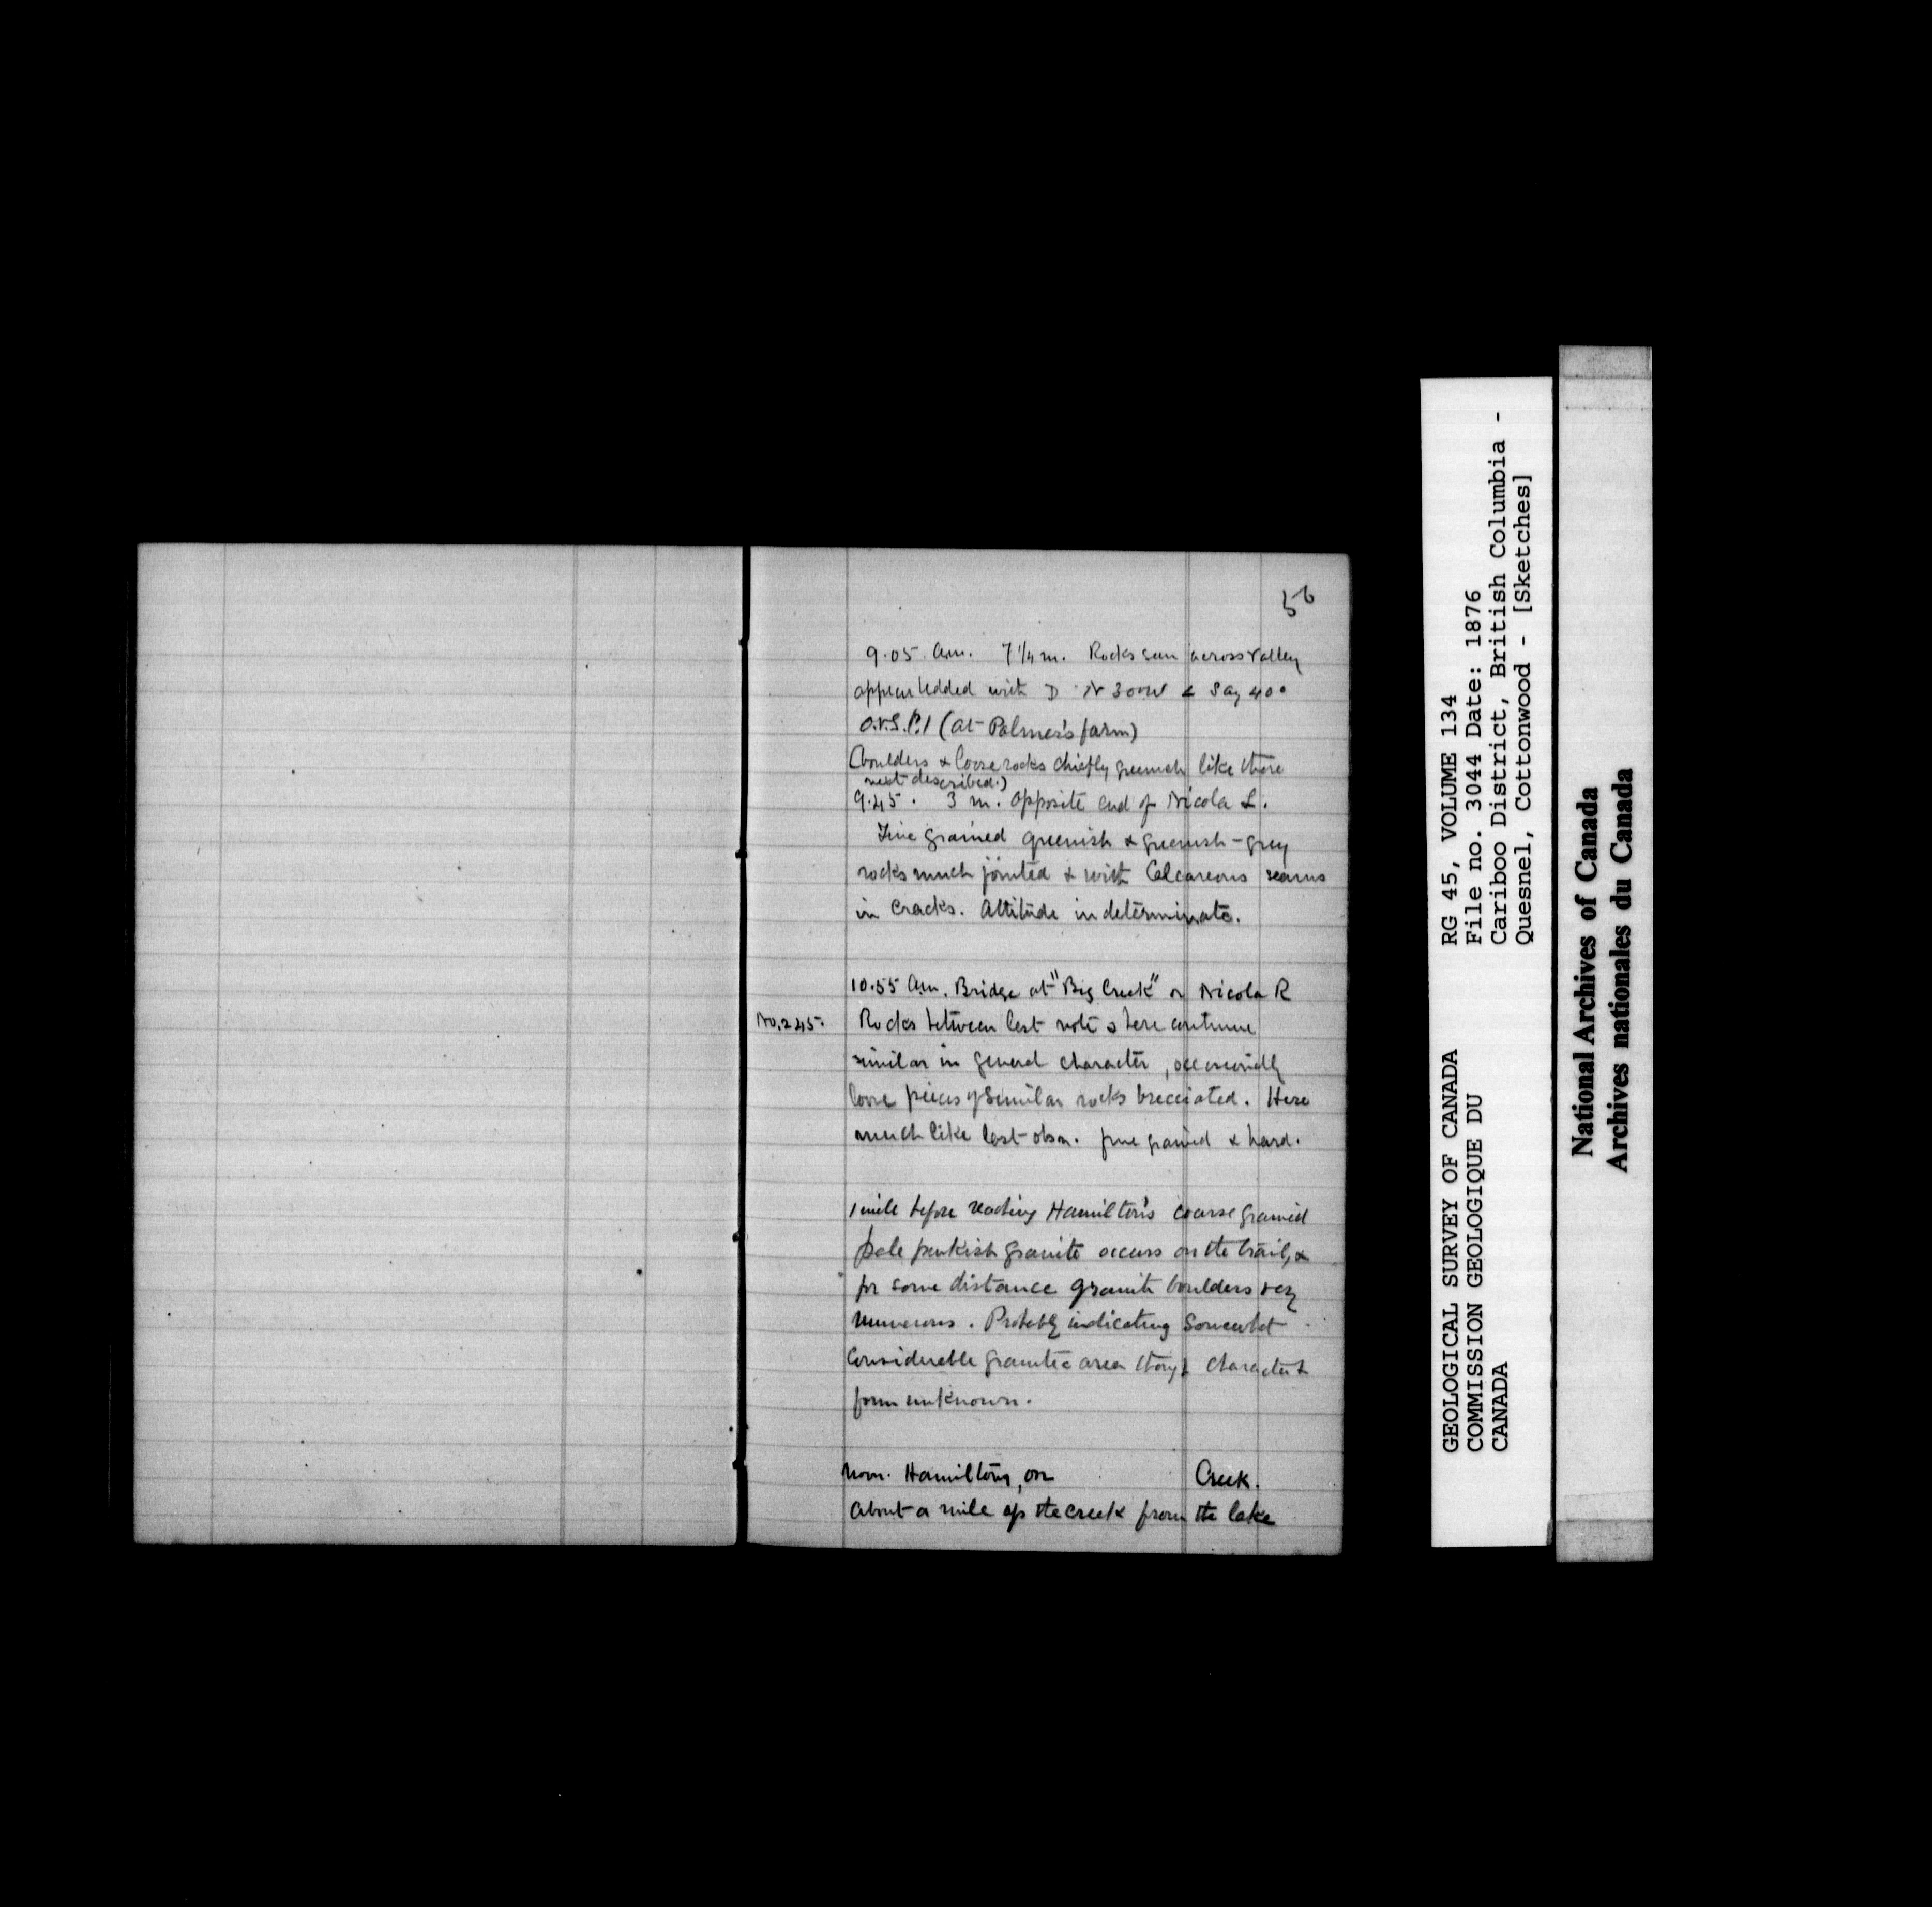 56
9.05 Am. 7 1/4 m. Rocks seen across valley
appear bedded with D N 30 W < Say 40°
(at Palmer's farm)
(boulders & loose rocks chiefly greenish like those
next described.)
9.45. 3 m. opposite end of Nicola L.
Fine grained greenish & greenish-grey
rocks much jointed & with Calcareous seams
in Cracks. Attitude indeterminate.
10.55 Am. Bridge at "Big Creek" or Nicola R
No. 245. Rocks between last note & here continue
similar in general character, occasionally
loose pieces of similar rocks brecciated. Here
much like last obsn. fine grained & hard.
1 mile before reaching Hamilton's coarse grained
pale pinkish granite occurs on the trail, &
for some distance granite boulders very
numerous. Probably indicating Somewhat
Considerable granitic area though character &
form unknown.
Noon. Hamiltons, on Creek.
About a mile up the creek from the lake
GEOLOGICAL SURVEY OF CANADA
COMMISSION GEOLOGIQUE DU
CANADA
RG 45, VOLUME 134
File no. 3044 Date: 1876
Cariboo District, British Columbia -
Quesnel, Cottonwood - [Sketches]
National Archives of Canada
Archives nationales du Canada